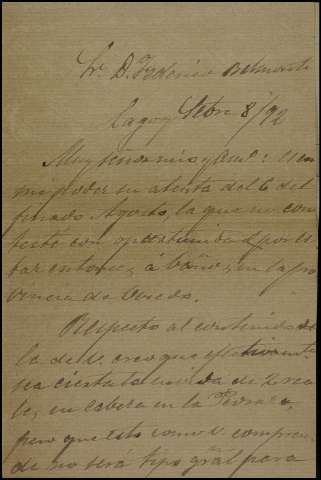 Sr. D. Federico Belmonte
Lago y Setbre 8/92
Muy señor mio y am.º: es en
mi poder su atenta del 6 del
pasado Agosto, la que no con
testé con oportunidad por es
tar entonces á baños, en la pro
vincia de Oviedo.
Respecto al contenido de
la de V. creo que efectivamente
sea cierta la subida de 2 rea
les, en cabeza en la
pero que esto como V. compren
de no será tipo gral para